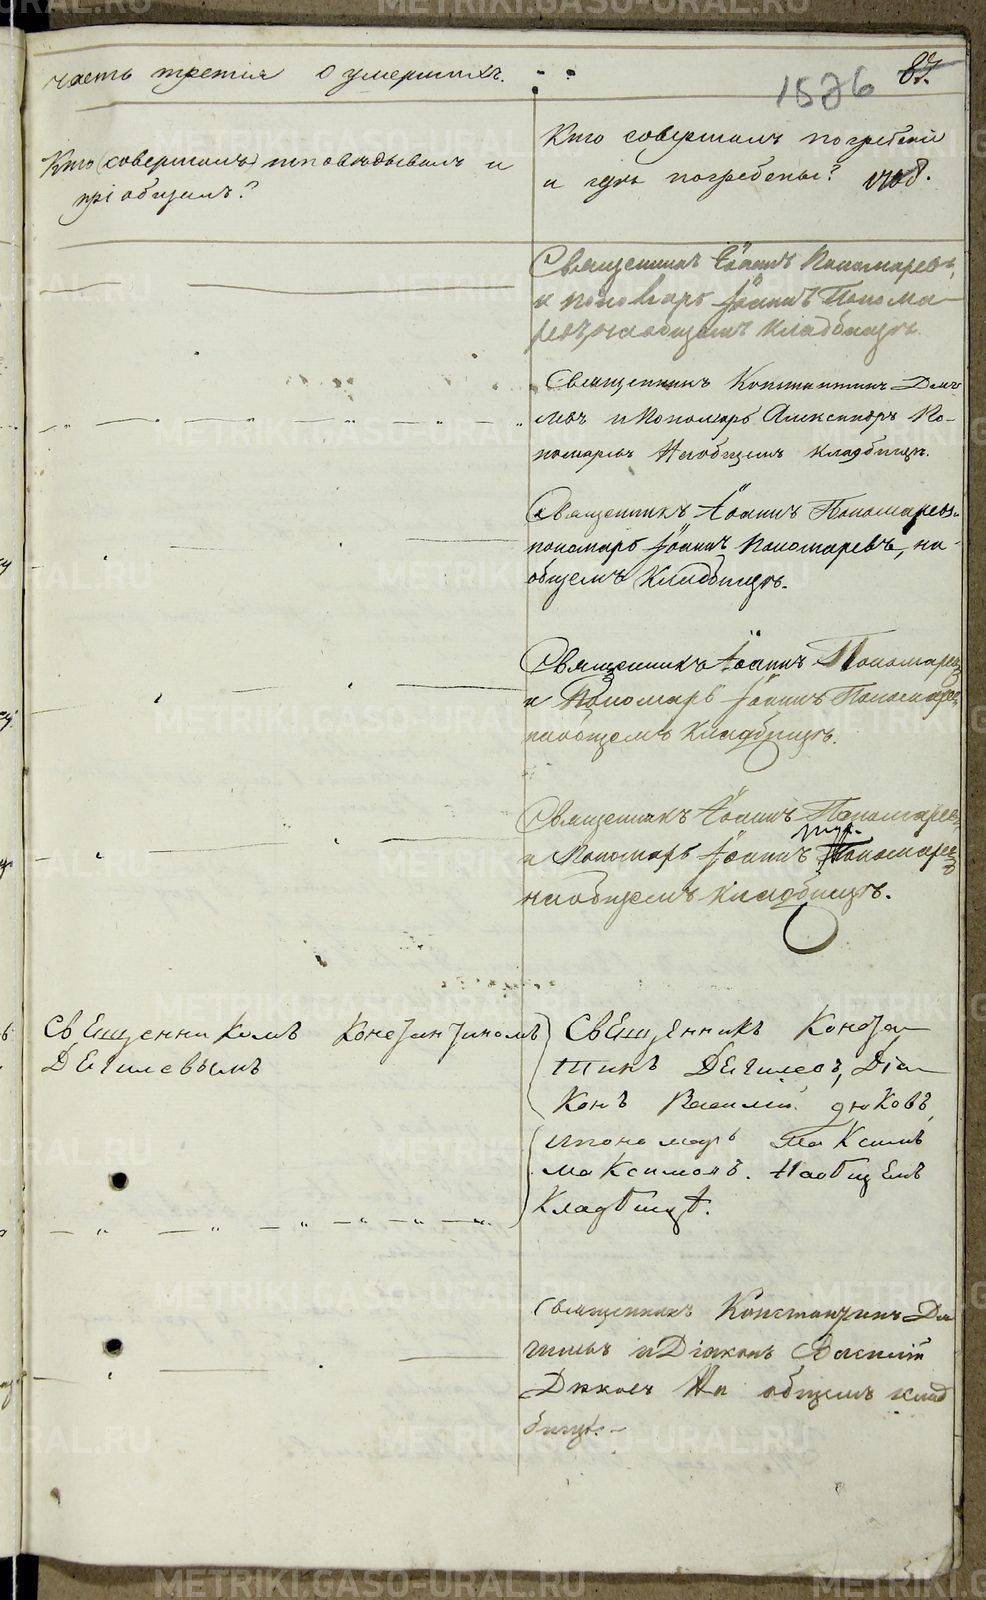 часть третія о умершихъ.
1576 87.
Кто (совершалъ) исповѣдывалъ и
пріобщалъ?
Кто совершалъ погребеній
и гдѣ погребены?
Священникъ Іоаннъ Пономаревъ,
и пономарь Іоаннъ Понома-
ревъ, на общемъ кладбищѣ.
Священникъ Константинъ
и Пономарь Александръ По-
номаревъ На общемъ кладбищѣ.
Священникъ Іоаннъ Пономаревъ
пономарь Іоаннъ Пономаревъ, на
общемъ Кладбищѣ.
Священникъ Іоаннъ Пономаревъ
и Пономарь Іоаннъ Пономаревъ
на общемъ Кладбищѣ.
Священникъ Іоаннъ Пономаревъ
и Пономарь Іоаннъ Пономаревъ
на общемъ кладбищѣ.
СвЕщенникомъ Константиномъ
ДЕгилевымъ
СвЕщенникъ Констан-
тинъ ДЕгилевъ, Діа-
Конъ Василій дюКовъ,
и пономарь МаКсимъ
маКсимовъ. На общЕмъ
Кладбищѣ.
Священникъ Константинъ Де
гилевъ и Діаконъ Василій
Дюковъ На общемъ клад
бищѣ.-
METRIKI.GASO-URAL.RU